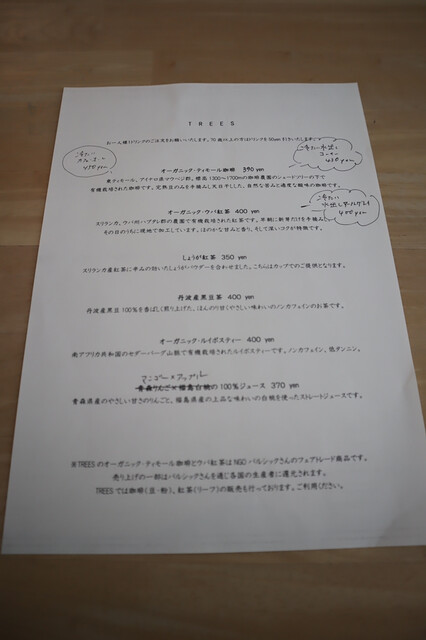 TREES
お一人様1ドリンクのご注文をお願いいたします。
冷たい
450 yen
冷たい水出し
コーヒー
450 yen
オーガニック・ティモール珈琲 390 yen
東ティモール、アイナロ県マウベシ郡、標高1300〜1700mの珈琲農園のシェードツリーの下で
有機栽培された珈琲です。完熟豆のみを手摘みし天日干しした、自然な甘みと適度な酸味の珈琲です。
冷たい
水出しアールグレイ
450 yen
オーガニック・ウバ紅茶 400 yen
スリランカ、ウバ州・ハプタレ郡の農園で有機栽培された紅茶です。早朝に新芽だけを手摘みし
その日のうちに現地で加工しています。ほのかな甘みと香り、そして深いコクが特徴です。
しょうが紅茶 350 yen
スリランカ産紅茶に辛みの効いたしょうがパウダーを合わせました。こちらはカップでのご提供となります。
丹波産黒豆茶 400 yen
丹波産黒豆100%を香ばしく煎り上げた、ほんのり甘くやさしい味わいのノンカフェインのお茶です。
オーガニック・ルイボスティー 400 yen
南アフリカ共和国のセダーバーグ山脈で有機栽培されたルイボスティーです。ノンカフェイン、低タンニン。
マンゴー×アップル
青森りんご×福島白桃の100%ジュース 370 yen
青森県産のやさしい甘さのりんごと、福島県産の上品な味わいの白桃を使ったストレートジュースです。
※TREESのオーガニック・ティモール珈琲とウバ紅茶はNGOパルシックさんのフェアトレード商品です。
売り上げの一部はパルシックさんを通じ各国の生産者に還元されます。
TREESでは珈琲(豆・粉)、紅茶(リーフ)の販売も行っております。ご利用ください。